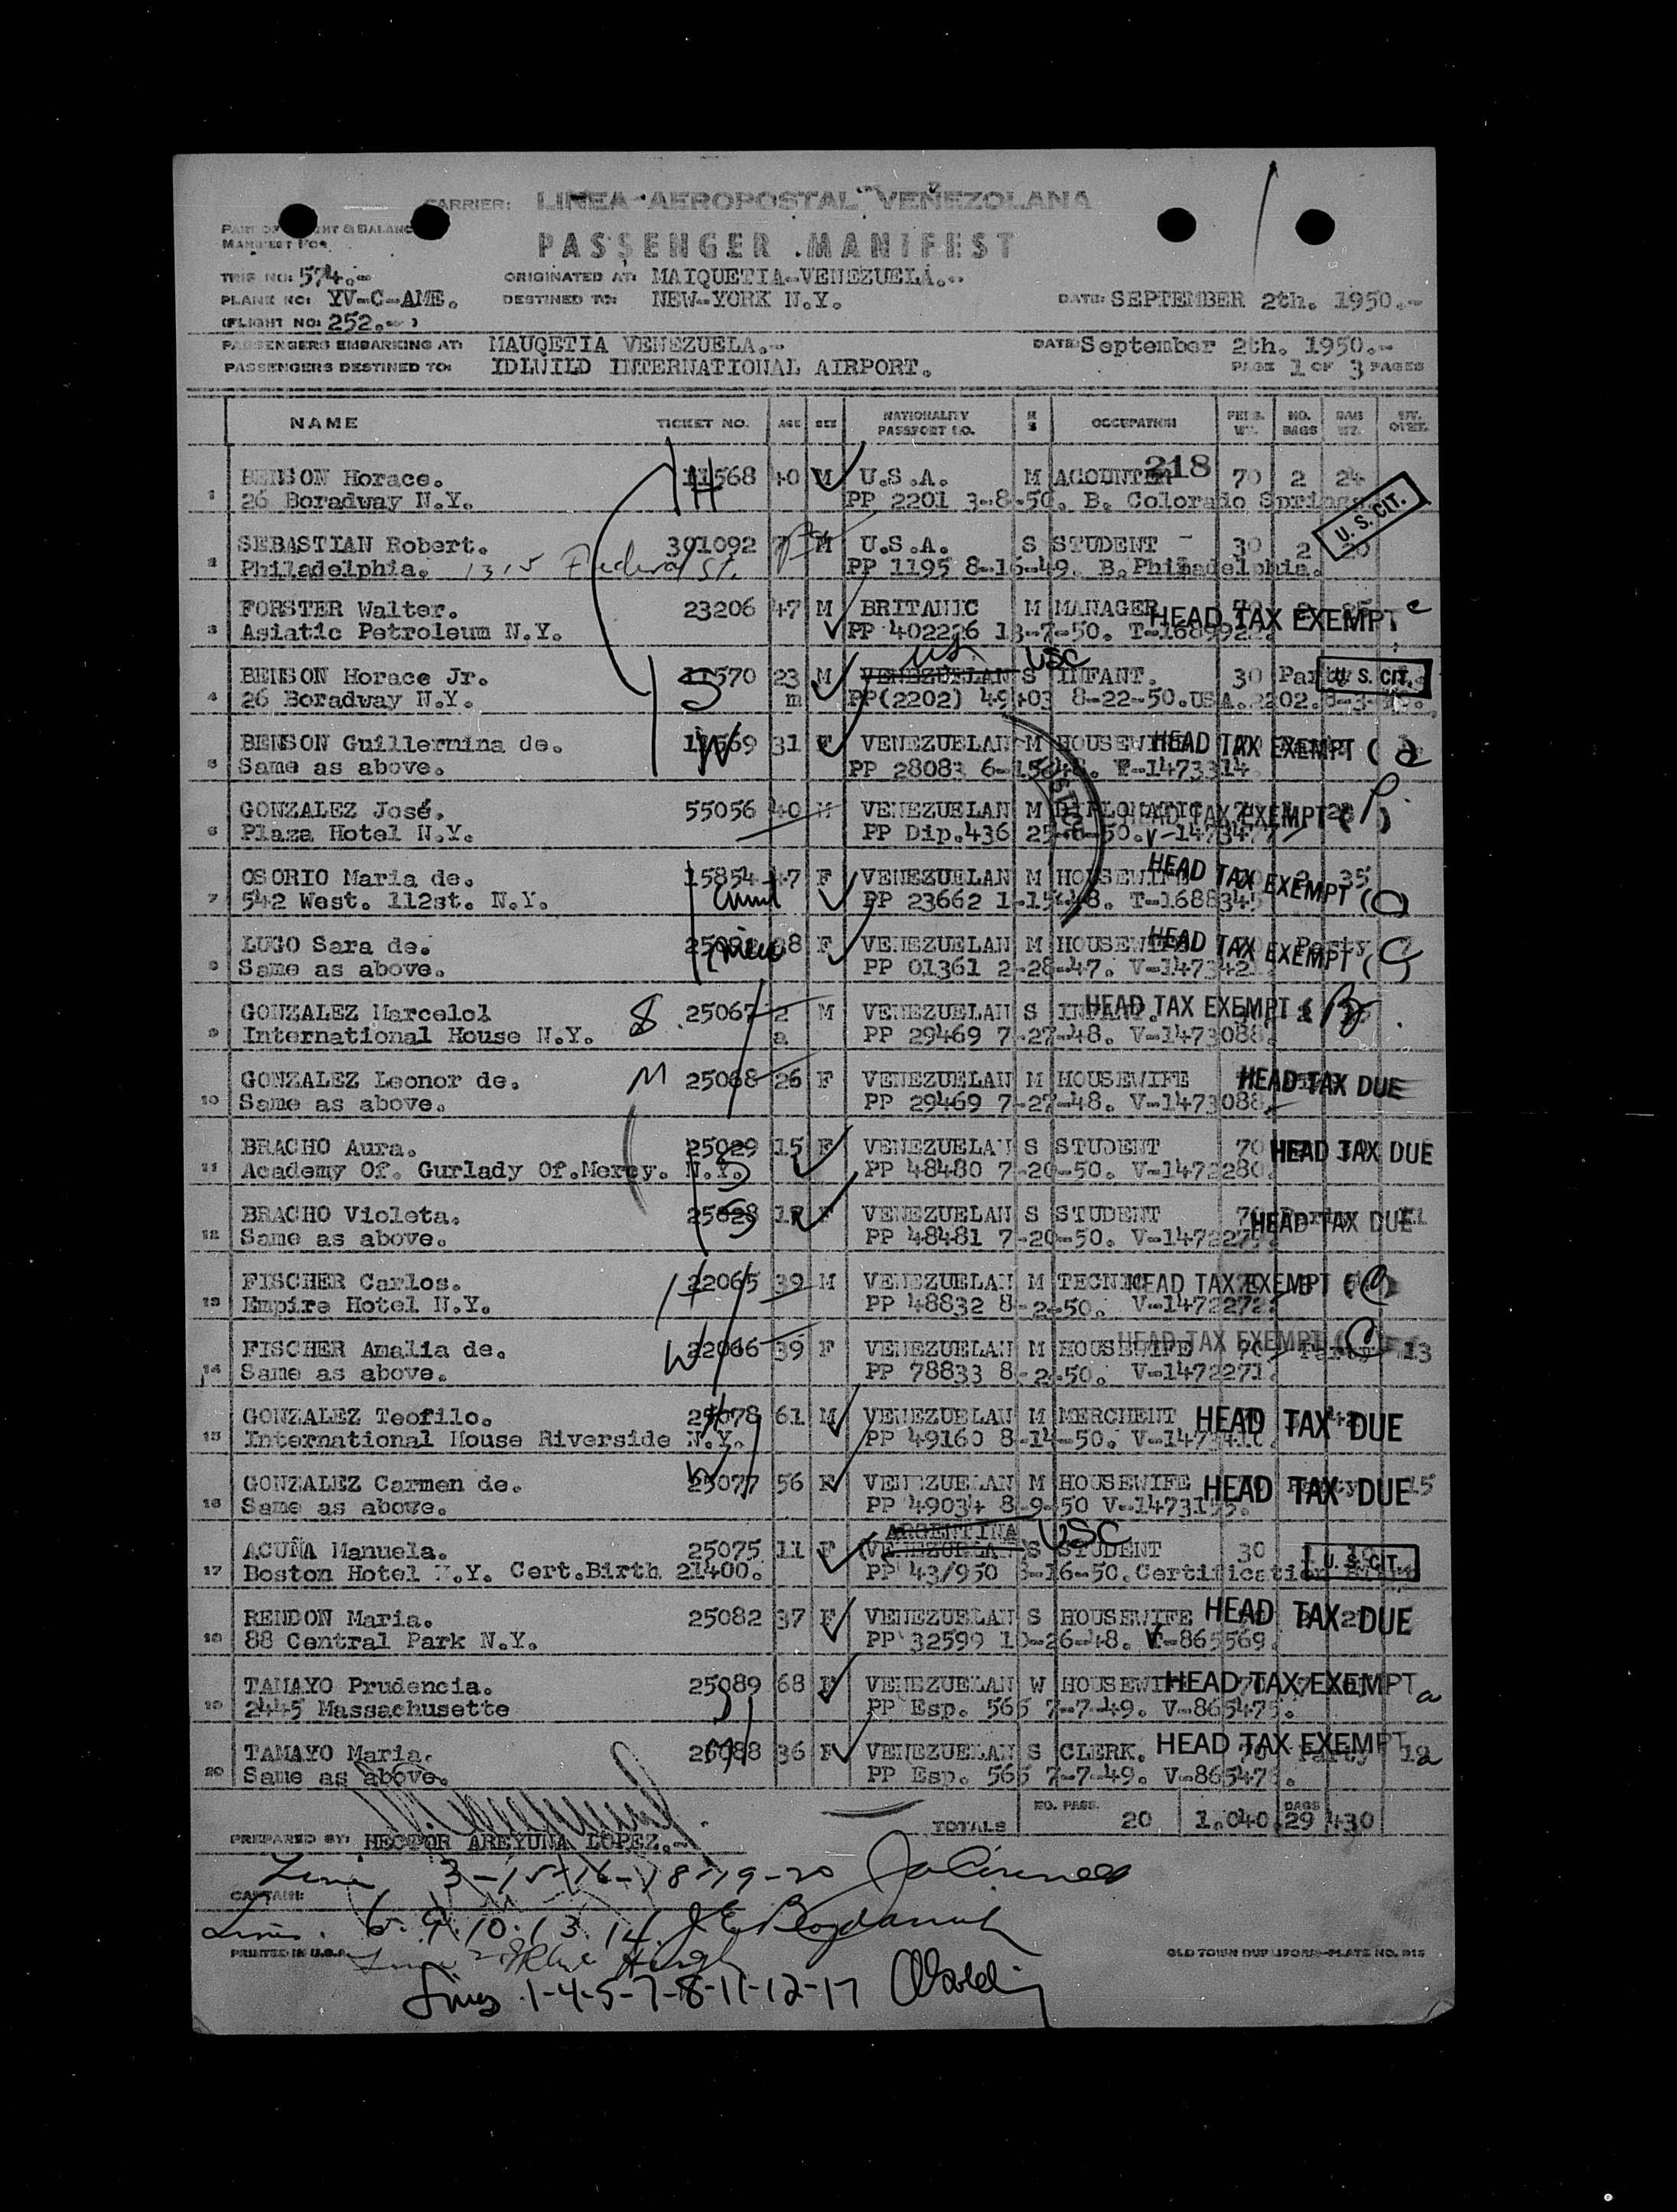 CARRIER: LINEA AEROPOSTAL VENEZOLANA
MANIFEST FOR
PASSENGER MANIFEST
TRIP NO: 574.-
ORIGINATED AT: MAIQUETIA-VENEZUELA.-
PLANE NO: YV-C-AME.
DESTINED TO: NEW-YORK N.Y.
DATE: SEPTEMBER 2th. 1950.-
(FLIGHT NO: 252.- )
PASSENGERS EMBARKING AT: MAUQETIA VENEZUELA.-
DATE: September 2th. 1950.-
PASSENGERS DESTINED TO: IDLWILD INTERNATIONAL AIRPORT.
PAGE 1 OF 3 PAGES
NAME TICKET NO. AGE SEX NATIONALITY PASSPORT NO. M S OCCUPATION WT. NO. BAGS BAG WT.
218
1 BENSON Horace. 11568 40 M U.S.A. M ACOUNTER 70 2 24
26 Boradway N.Y. PP 2201 3-8-50. B. Colorado Springs
U. S. CIT.
2 SEBASTIAN Robert. 391092 7 M U.S.A. S STUDENT - 30 2 20
Philadelphia. 1315 Federal St. PP 1195 8-16-49. B. Philadelphia.
3 FORSTER Walter. 23206 47 M BRITANIC M MANAGER HEAD TAX EXEMPT c
Asiatic Petroleum N.Y. PP 402226 13-7-50.
USC
4 BENSON Horace Jr. 11570 23 m M VENEZUELAN S INFANT. 30 U. S. CIT.
26 Boradway N.Y. PP(2202) 49403 8-22-50. USA. 2202.
5 BENSON Guillermina de. 11569 31 F VENEZUELAN M HOUSEWIFE HEAD TAX EXEMPT (a
Same as above. PP 28083 6-15-48. T-1473314
6 GONZALEZ José. 55056 40 M VENEZUELAN M DIPLOMATIC HEAD TAX EXEMPT
Plaza Hotel N.Y. PP Dip.436
7 OSORIO Maria de. 15854 47 F VENEZUELAN M HOUSEWIFE HEAD TAX EXEMPT
542 West. 112st. N.Y. PP 23662 1-15-48. T-1688345
8 LUGO Sara de. 38 F VENEZUELAN M HOUSEWIFE HEAD TAX EXEMPT
Same as above. PP 01361 2-28-47.
9 GONZALEZ Marcelol 25067 2 a M VENEZUELAN S INFANT. HEAD TAX EXEMPT
International House N.Y. PP 29469 7-27-48. V-1473088.
10 GONZALEZ Leonor de. M 25068 26 F VENEZUELAN M HOUSEWIFE HEAD TAX DUE
Same as above. PP 29469 7-27-48. V-1473088
11 BRACHO Aura. 25029 15 F VENEZUELAN S STUDENT 70 HEAD TAX DUE
Academy Of. Gurlady Of.Mercy. N.Y. PP 48480 7-20-50. V-1472280.
12 BRACHO Violeta. 25028 F VENEZUELAN S STUDENT 70 HEAD TAX DUE
Same as above. PP 48481 7-20-50.
13 FISCHER Carlos. 22065 39 M VENEZUELAN M HEAD TAX EXEMPT
Empire Hotel N.Y. PP 48832 8-2-50. V-1472272
14 FISCHER Amalia de. 22066 39 F VENEZUELAN M HOUSEWIFE HEAD TAX EXEMPT 13
Same as above. PP 78833 8-2-50. V-1472271.
15 GONZALEZ Teofilo. 25078 61 M VENEZUELAN M MERCHENT HEAD TAX DUE
International House Riverside N.Y. PP 49160 8-14-50.
16 GONZALEZ Carmen de. 25077 56 F VENEZUELAN M HOUSEWIFE HEAD TAX DUE 15
Same as above. PP 49034 8-9-50
ARGENTINA USC
17 ACUÑA Manuela. 25075 11 F VENEZUELAN S STUDENT 30 U. S. CIT.
Boston Hotel N.Y. Cert.Birth 21400. PP 43/950 3-16-50. Certification
18 RENDON Maria. 25082 37 F VENEZUELAN S HOUSEWIFE HEAD TAX DUE
88 Central Park N.Y. PP 32599 10-26-48. V-865569.
19 TAMAYO Prudencia. 25089 68 F VENEZUELAN W HOUSEWIFE HEAD TAX EXEMPT a
2445 Massachusette PP Esp. 565 7-7-49. V-865475.
20 TAMAYO Maria. 25088 36 F VENEZUELAN S CLERK. HEAD TAX EXEMPT
Same as above. PP Esp. 565 7-7-49.
TOTALS NO. PASS. 20 1.040 BAGS 29 430
PREPARED BY: HECTOR AREYUNA LOPEZ.-
3-15-16-18-19-20
CAPTAIN:
6. 9. 10. 13. 14.
PRINTED IN U.S.A.
OLD TOWN DUPLIFORM-PLATE NO. 915
Lines 1-4-5-7-8-11-12-17